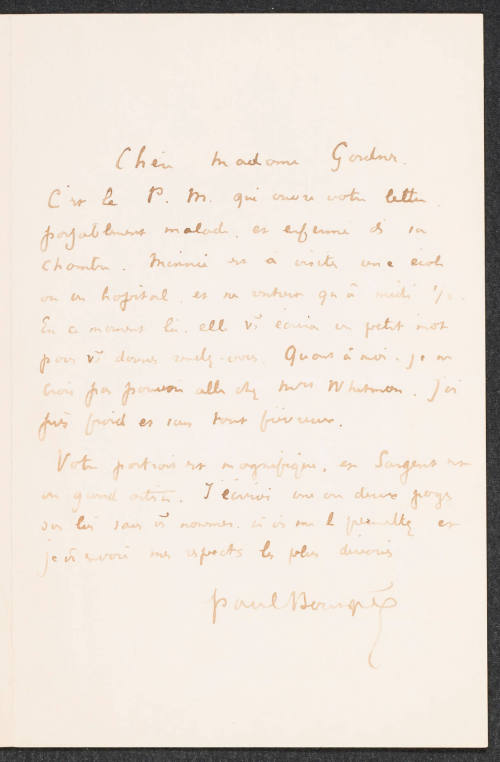 Chère Madame Gardner.
C'est le P. M. qui ouvre votre lettre,
parfaitement malade, et enfermé ds sa
chambre. Minnie est à visiter une école
ou un hopital, et ne rentrera qu'à midi 1/2.
En ce moment là, elle vs écrira un petit mot
pour vs donner rendez-vous. Quant à moi, je ne
crois pas pouvoir aller chez Mrs Whitman. J'ai
pris froid et suis tout fiévreux.
Votre portrait est magnifique, et Sargent est
un grand artiste. J'écrirai une ou deux pages
sur lui sans vs nommer, si vs me l permettez et
je vs envoie mes respects les plus dévoués
Paul Bourget